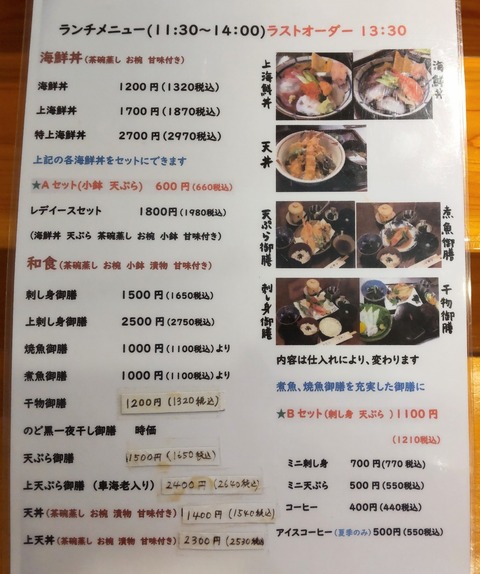 ランチメニュー(11:30～14:00)ラストオーダー 13:30
海鮮丼(茶碗蒸し お椀 甘味付き)
海鮮丼 1200円(1320税込)
上海鮮丼 1700円(1870税込)
特上海鮮丼 2700円(2970税込)
上記の各海鮮丼をセットにできます
★Aセット(小鉢 天ぷら) 600円(660税込)
レディースセット 1800円(1980税込)
(海鮮丼 天ぷら 茶碗蒸し お椀 小鉢 甘味付き)
和食(茶碗蒸し お椀 小鉢 漬物 甘味付き)
刺し身御膳 1500円(1650税込)
上刺し身御膳 2500円(2750税込)
焼魚御膳 1000円(1100税込)より
煮魚御膳 1000円(1100税込)より
干物御膳 1200円(1320税込)
のど黒一夜干し御膳 時価
天ぷら御膳 1500円(1650税込)
上天ぷら御膳(車海老入り) 2400円(2640税込)
天丼(茶碗蒸し お椀 漬物 甘味付き) 1400円(1540税込)
上天丼(茶碗蒸し お椀 漬物 甘味付き) 2300円(2530税込
上海鮮丼
海鮮丼
天丼
天ぷら御膳
煮魚御膳
刺し身御膳
干物御膳
内容は仕入れにより、変わります
煮魚、焼魚御膳を充実した御膳に
★Bセット(刺し身 天ぷら)1100円
(1210税込)
ミニ刺し身 700円(770税込)
ミニ天ぷら 500円(550税込)
コーヒー 400円(440税込)
アイスコーヒー(夏季のみ)500円(550税込)